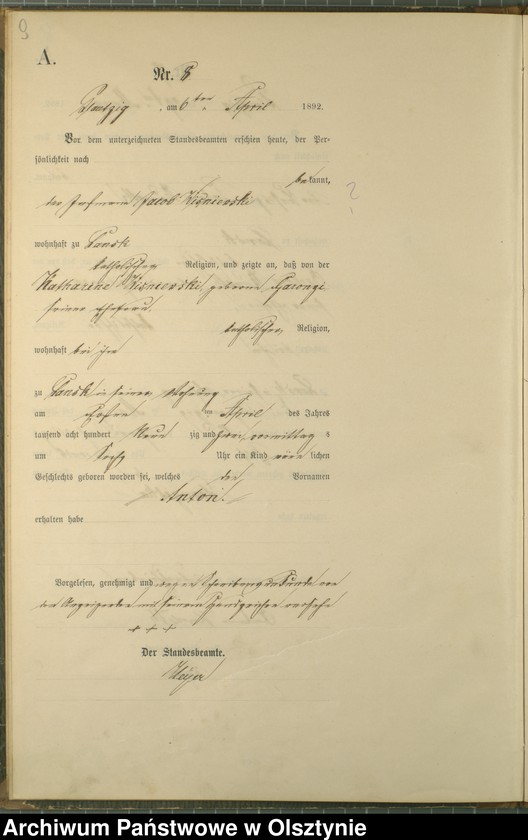 9
A.
Nr. 8
am 6ten April 1892.
Vor dem unterzeichneten Standesbeamten erschien heute, der Per-
sönlichkeit nach
bekannt,
der Jacob Wisniewski
?
wohnhaft zu Lansk
katholischer Religion, und zeigte an, daß von der
Katharine Wisniewski, geborene
seiner Ehefrau,
katholischer Religion,
wohnhaft bei ihm
zu Lansk in seiner Wohnung
am ten April des Jahres
tausend acht hundert Neun zig und zwei, vormittag s
um Sechs Uhr ein Kind männ lichen
Geschlechts geboren worden sei, welches den Vornamen
Anton
erhalten habe
Vorgelesen, genehmigt und wegen Schreibensunkunde von
dem mit seinem Handzeichen versehen
+ + +
Der Standesbeamte.
Archiwum Państwowe w Olsztynie